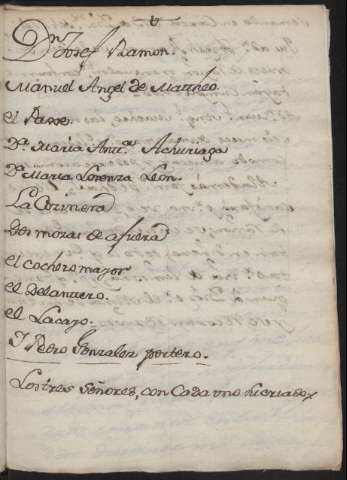 Dn. Josef Ramon.
Manuel Angel de Mattheo.
el Padre.
Da. Maria Anta. Achuriaga
Da. Maria Lorenza Leon.
La Cozinera
Dos mozas de afuera
el cochero mayor
el Delantero.
el Lacayo.
I Pedro Gonzalez portero.
Los tres Señores, con Cada uno su criado